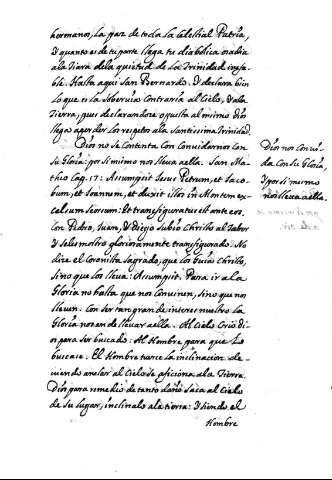 hermanos, la paz de toda la Celestial Patria,
Y quanto es de tu parte llega tu diabolica rabia
a la Tiara de la quietud de La Trinidad inefa-
ble. Hasta aqui San Bernardo. Y declara bien
lo que es la Sobervia Contraria al Cielo, Y a la
Tierra, pues declarandose opuesta al mismo Dios
llega a perder los respetos a la Santissima Trinidad.
Dios no se Contenta con Convidarnos con
su Gloria: por si mismo nos lleva a ella. San Ma-
theo Cap. 17: Assumpsit Jesus Petrum, et Jaco-
bum, et Joannem, et duxit illos in Montem ex-
celsum seorsum: Et transfiguratus est ante eos.
Con Pedro, Juan, Y Diego subió Christo al Tabor
Y se les mostro gloriosamente transfigurado. No
dize el Coronista Sagrado, que los guió Christo,
sino que los lleva: Assumpsit. Para ir a la
Gloria no basta que nos Conviden, sino que nos
lleven. Con ser tan gran de interes nuestro la
Gloria nos an de llevar a ella. Al Cielo Crió Di-
os para ser buscado: Al Hombre para que lo
buscase: El Hombre tuerce la inclinacion de-
viendo anelar al Cielo se aficiona a la Tierra
Dios para remedio de tanto daño saca al Cielo
de su lugar, inclinalo a la tierra: Y siendo el
Hombre
Dios nos convi-
da Con su Gloria,
Y por si mismo
nos lleva a ella.